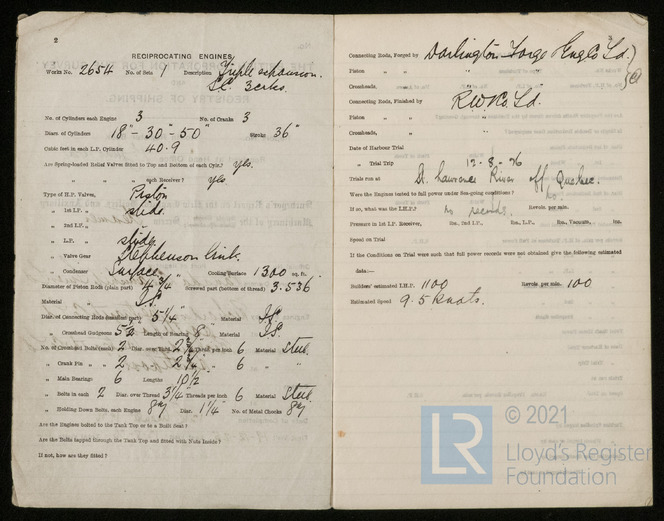 2
RECIPROCATING ENGINES
Works No. 2654 No. of Sets 1 Description Triple expansion.
S.C. 3 crks.
No. of Cylinders each Engine 3 No. of Cranks 3
Diars. of Cylinders 18" - 30" - 50" Stroke 36"
Cubic feet in each L.P. Cylinder 40.9
Are Spring-loaded Relief Valves fitted to Top and Bottom of each Cylr.? yes.
" " " each Receiver? yes
Type of H.P. Valves, Piston
" 1st I.P. " slide.
" 2nd I.P. "
" L.P. " slide
" Valve Gear Stephenson link.
" Condenser Surface Cooling Surface 1300 sq. ft.
Diameter of Piston Rods (plain part) 4 3/4" Screwed part (bottom of thread) 3.536"
Material I.S.
Diar. of Connecting Rods (smallest part) 5 1/4" Material I.S.
" Crosshead Gudgeons 5 1/2 Length of Bearing 8" Material I.S.
No. of Crosshead Bolts (each) 2 Diar. over Thrd. Thrds. per inch 6 Material Steel
" Crank Pin " " 2 " " 6 " "
" Main Bearings 6 Lengths 10 1/2"
" Bolts in each 2 Diar. over Thread Threads per inch 6 Material Steel
" Holding Down Bolts, each Engine Diar. 1 1/4" No. of Metal Chocks
Are the Engines bolted to the Tank Top or to a Built Seat?
Are the Bolts tapped through the Tank Top and fitted with Nuts Inside?
If not, how are they fitted?
3
Connecting Rods, Forged by Darlington Forge Eng Co Ld.
Piston " "
Crossheads, "
Connecting Rods, Finished by R.W. Co. Ld.
Piston " "
Crossheads, "
Date of Harbour Trial
" Trial Trip 12-8-26
Trials run at St. Lawrence River off Quebec.
Were the Engines tested to full power under Sea-going conditions? no.
If so, what was the I.H.P.? no records. Revols. per min.
Pressure in 1st I.P. Receiver, lbs., 2nd I.P., lbs., L.P., lbs., Vacuum, ins.
Speed on Trial
If the Conditions on Trial were such that full power records were not obtained give the following estimated
data:—
Builders' estimated I.H.P. 1100 Revols. per min. 100
Estimated Speed 9.5 knots.
LR
© 2021
Lloyd's Register
Foundation